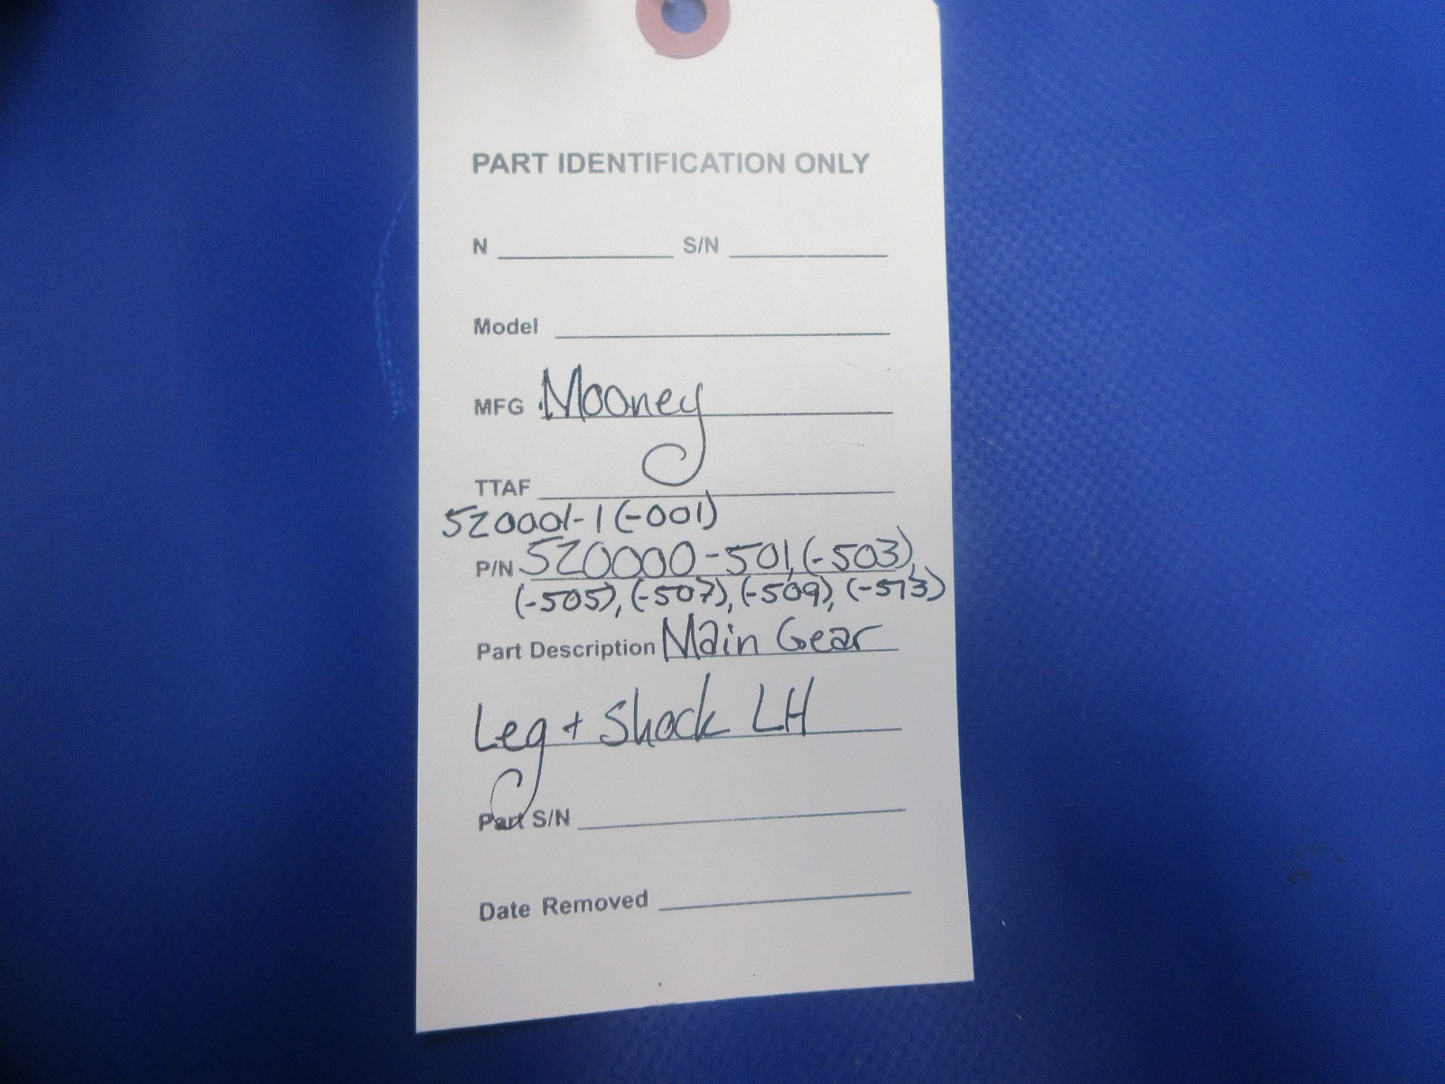 PART IDENTIFICATION ONLY
N S/N
Model
MFG Mooney
TTAF
520001-1 (-001)
P/N 520000-501, (-503),
(-505), (-507), (-509), (-513)
Part Description Main Gear
Leg + Shock LH
Part S/N
Date Removed